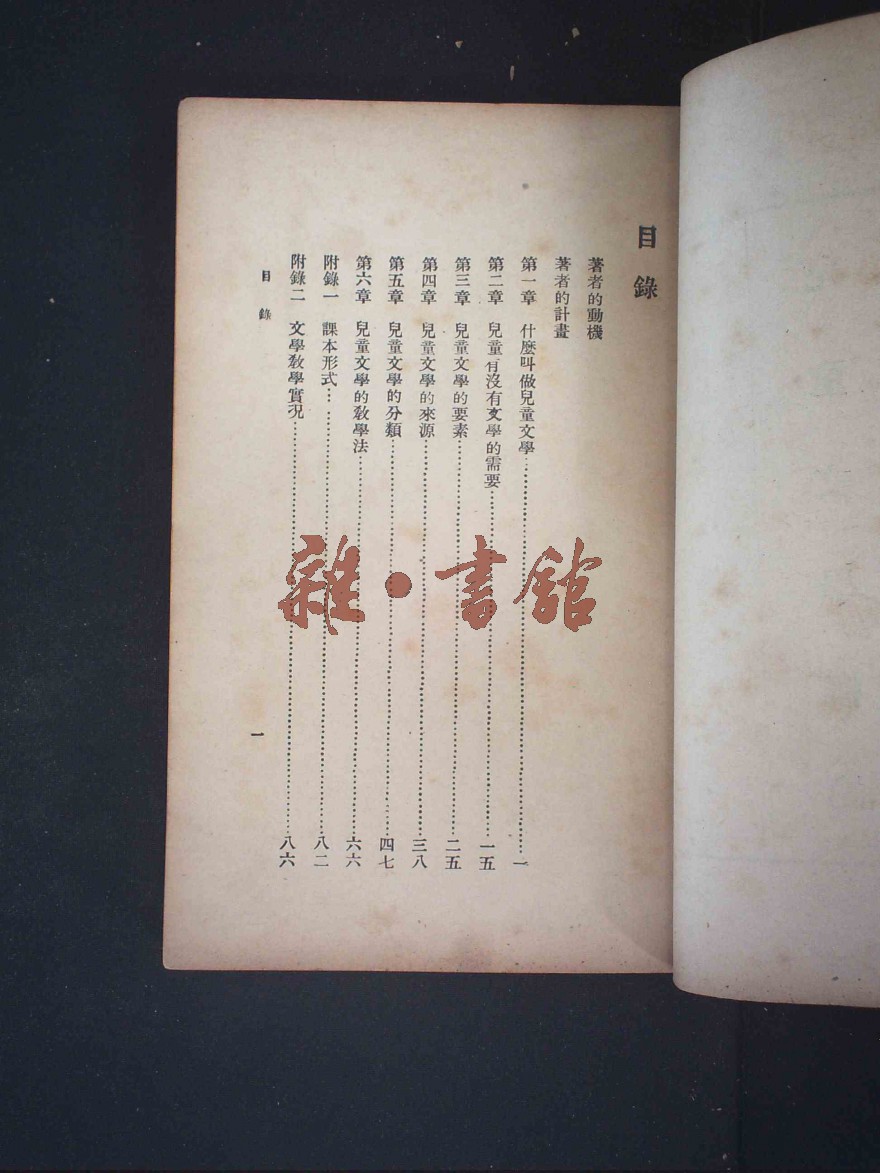 目錄
著者的動機
著者的計畫
第一章 什麼叫做兒童文學…………一
第二章 兒童有沒有文學的需要…………一五
第三章 兒童文學的要素…………二五
第四章 兒童文學的來源…………三八
第五章 兒童文學的分類…………四七
第六章 兒童文學的教學法…………六六
附錄一 課本形式…………八二
附錄二 文學教學實況…………八六
目錄 一
雜·書館